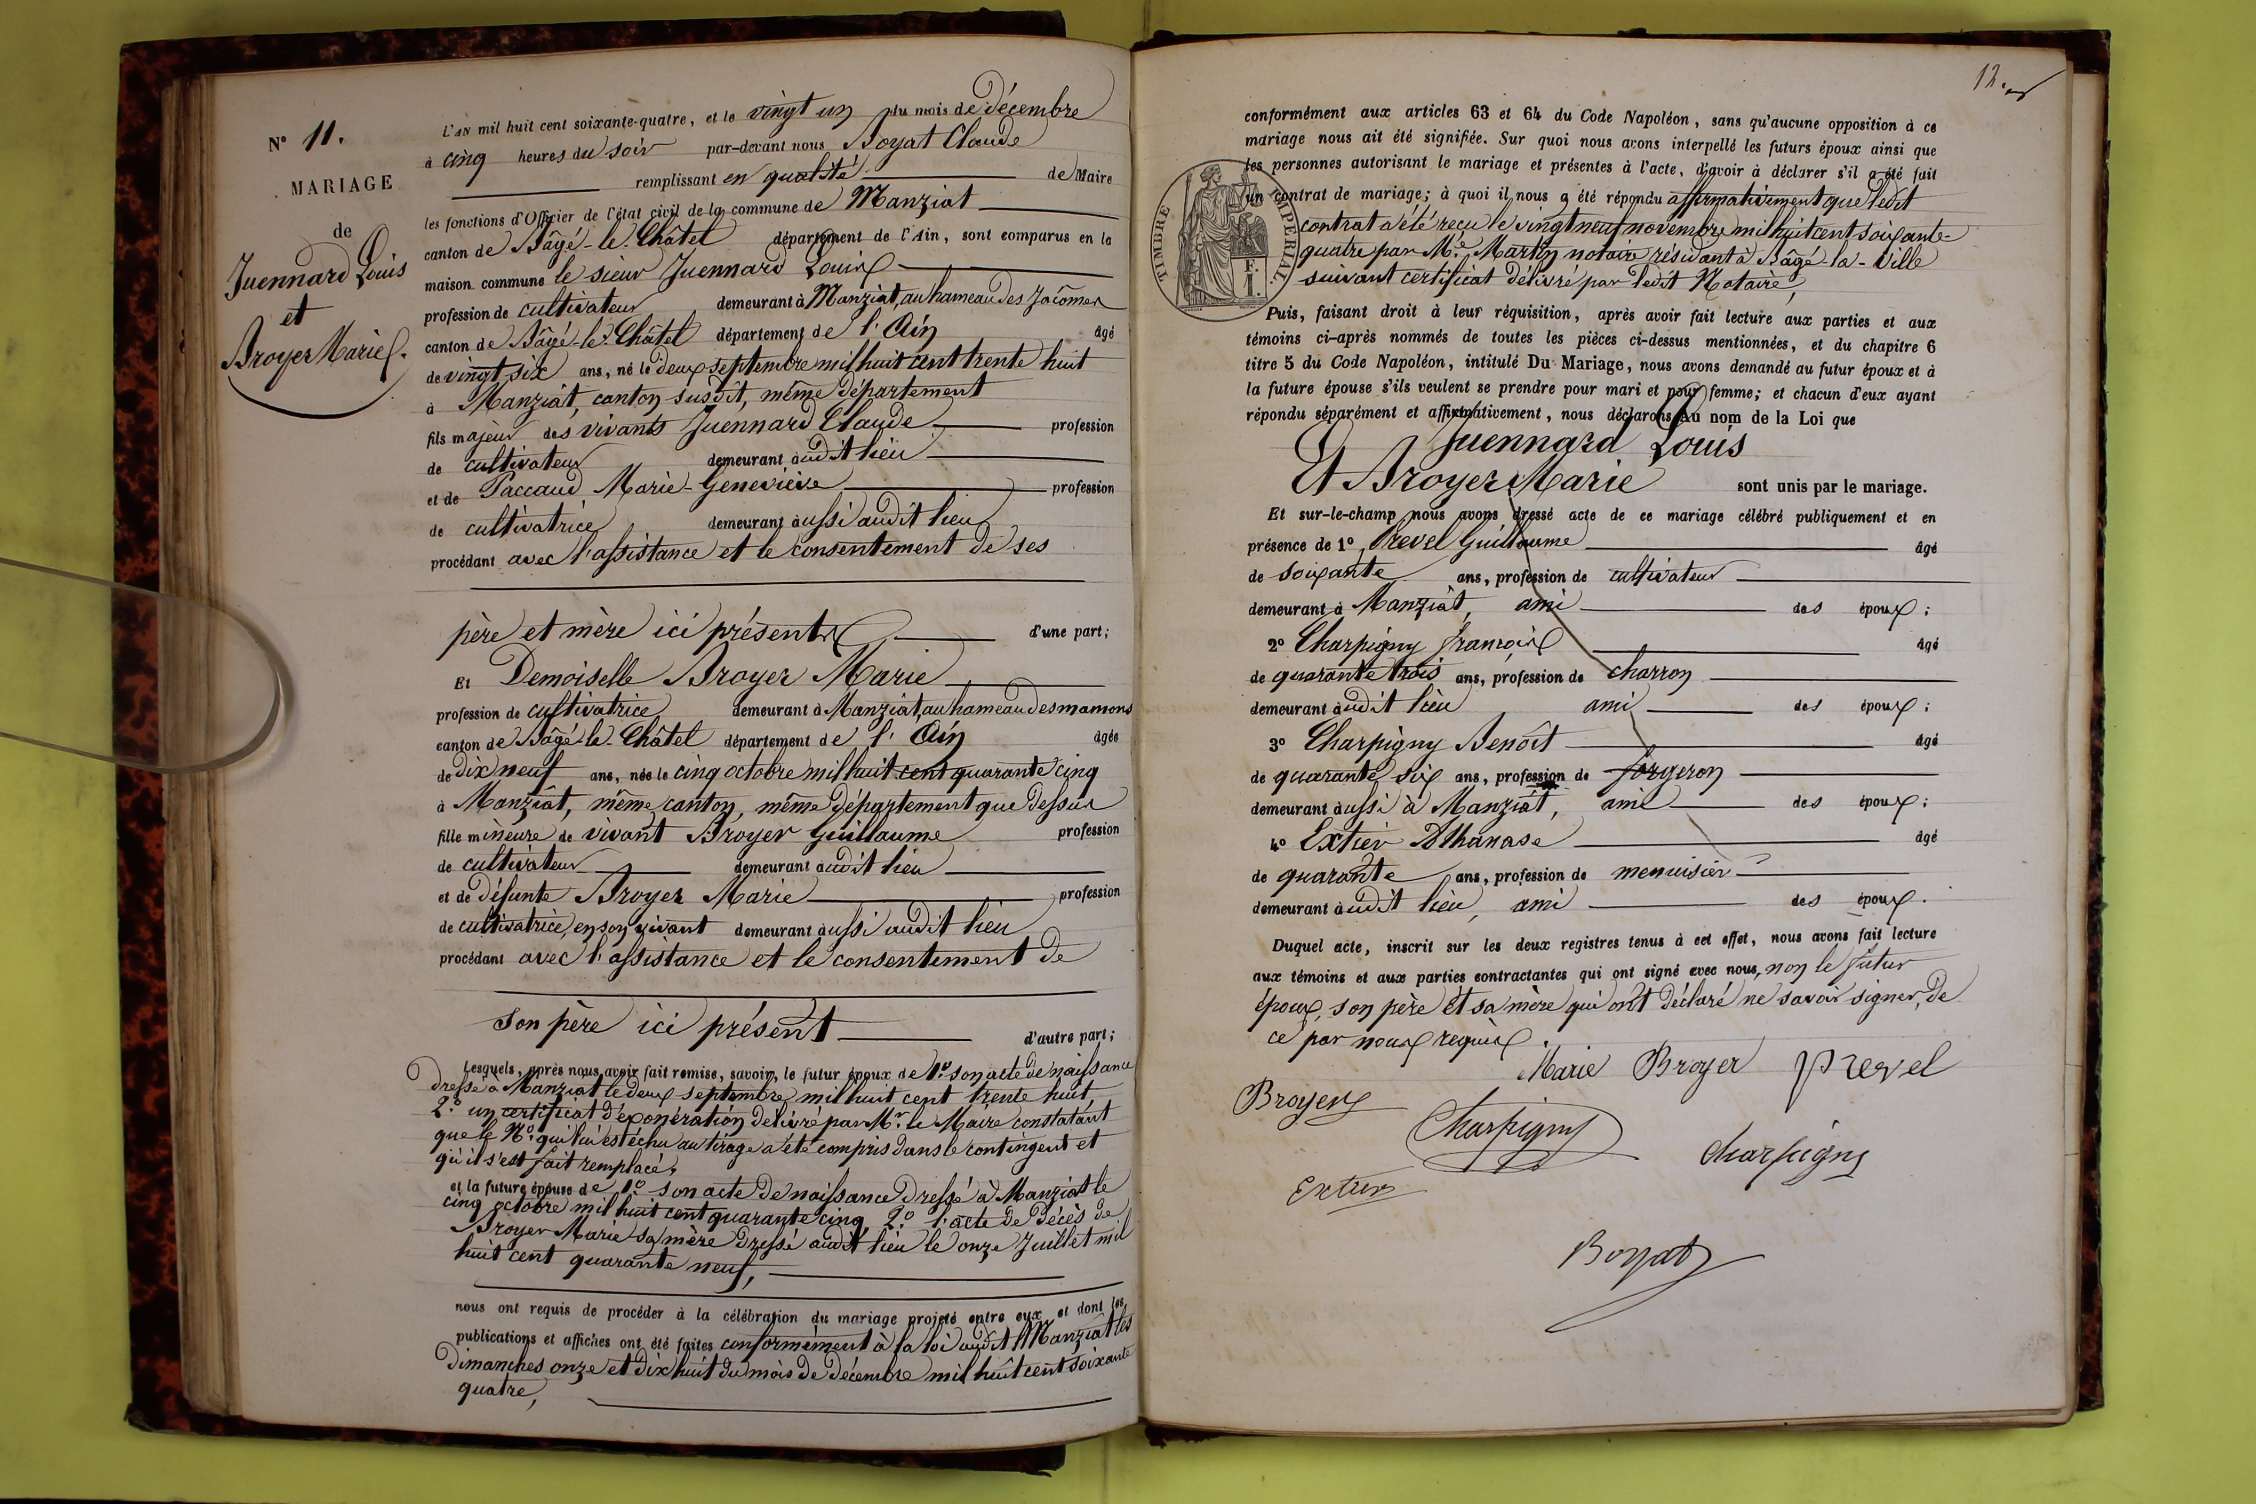 N° 11.
MARIAGE
de
Juennard Louis
et
Broyer Marie.
L'AN mil huit cent soixante-quatre, et le vingt un du mois de Décembre
à cinq heures du soir par-devant nous Boyat Claude
remplissant en qualité de Maire
les fonctions d'Officier de l'état civil de la commune de Manziat
canton de Bâgé-le-Châtel département de l'Ain, sont comparus en la
maison commune le sieur Juennard Louis
profession de cultivateur demeurant à Manziat, au hameau des Jacômes
canton de Bâgé-le-Châtel département de l'Ain âgé
de vingt six ans, né le deux septembre mil huit cent trente huit
à Manziat, canton susdit, même département
fils majeur des vivants Juennard Claude profession
de cultivateur demeurant audit lieu
et de Paccaud Marie-Geneviève profession
de cultivatrice demeurant aussi audit lieu
procédant avec l'assistance et le consentement de ses
père et mère ici présents d'une part;
Et Demoiselle Broyer Marie
profession de cultivatrice demeurant à Manziat, au hameau des mamons
canton de Bâgé-le-Châtel département de l'Ain âgée
de Dix neuf ans, née le cinq octobre mil huit cent quarante cinq
à Manziat, même canton, même département que dessus
fille mineure de vivant Broyer Guillaume profession
de cultivateur demeurant audit lieu
et de défunte Broyer Marie profession
de cultivatrice, en son vivant demeurant aussi audit lieu
procédant avec l'assistance et le consentement de
Son père ici présent d'autre part;
Lesquels, après nous avoir fait remise, savoir, le futur époux de 1° son acte de naissance
dressé à Manziat le deux septembre mil huit cent trente huit,
2° un certificat d'exonération délivré par Mr. le Maire constatant
que le N° qui lui est échu au tirage a été compris dans le contingent et
qu'il s'est fait remplacé,
et la future épouse de 1° son acte de naissance dressé à Manziat le
cinq octobre mil huit cent quarante cinq, 2° l'acte de décès de
Broyer Marie sa mère dressé audit lieu le onze Juillet mil
huit cent quarante neuf,
nous ont requis de procéder à la célébration du mariage projeté entre eux, et dont les
publications et affiches ont été faites conformément à la loi audit Manziat les
Dimanches onze et dix huit du mois de Décembre mil huit cent soixante
quatre,
12.
conformément aux articles 63 et 64 du Code Napoléon, sans qu'aucune opposition à ce
mariage nous ait été signifiée. Sur quoi nous avons interpellé les futurs époux ainsi que
les personnes autorisant le mariage et présentes à l'acte, d'avoir à déclarer s'il a été fait
un contrat de mariage; à quoi il nous a été répondu affirmativement que ledit
contrat a été reçu le vingt neuf novembre mil huit cent soixante-
quatre par Me. Martin notaire résidant à Bâgé-la-Ville
suivant certificat délivré par ledit Notaire,
TIMBRE IMPERIAL.
F.
I.
Puis, faisant droit à leur réquisition, après avoir fait lecture aux parties et aux
témoins ci-après nommés de toutes les pièces ci-dessus mentionnées, et du chapitre 6
titre 5 du Code Napoléon, intitulé Du Mariage, nous avons demandé au futur époux et à
la future épouse s'ils veulent se prendre pour mari et pour femme; et chacun d'eux ayant
répondu séparément et affirmativement, nous déclarons Au nom de la Loi que
Juennard Louis
Et Broyer Marie sont unis par le mariage.
Et sur-le-champ nous avons dressé acte de ce mariage célébré publiquement et en
présence de 1° Prevel Guillaume âgé
de soixante ans, profession de cultivateur
demeurant à Manziat, ami des époux;
2° Charpigny François âgé
de quarante trois ans, profession de charron
demeurant audit lieu ami des époux;
3° Charpigny Benoît âgé
de quarante six ans, profession de forgeron
demeurant aussi à Manziat, ami des époux;
4° Extier Athanase âgé
de quarante ans, profession de menuisier
demeurant audit lieu, ami des époux.
Duquel acte, inscrit sur les deux registres tenus à cet effet, nous avons fait lecture
aux témoins et aux parties contractantes qui ont signé avec nous, non le futur
époux, son père et sa mère qui ont déclaré ne savoir signer, de
ce par nous requis.
Marie Broyer Prevel
Broyer
Charpigny
Charpigny
Extier
Boyat